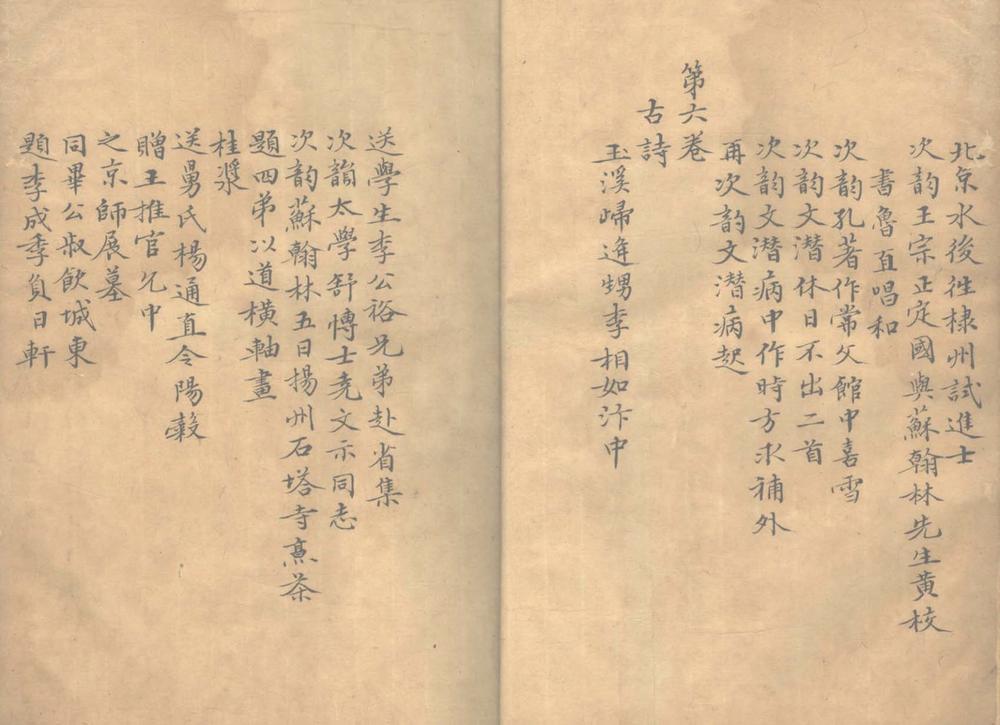 北京水後徃棣州試進士
次韵王宗正定國與蘇翰林先生黄校
書魯直唱和
次韵孔著作常父館中喜雪
次韵文潜休日不出二首
次韵文潜病中作時方求補外
再次韵文潜病起
第六卷
古詩
玉溪歸逄甥李相如汴中
送學生李公裕兄弟赴省集
次韻太學舒愽士尭文示同志
次韵蘇翰林五日揚州石塔寺烹茶
題四弟以道横軸畫
桂漿
送舅氏楊通直令陽榖
贈王推官允中
之京師展墓
同畢公叔飲城東
題李成季負日軒